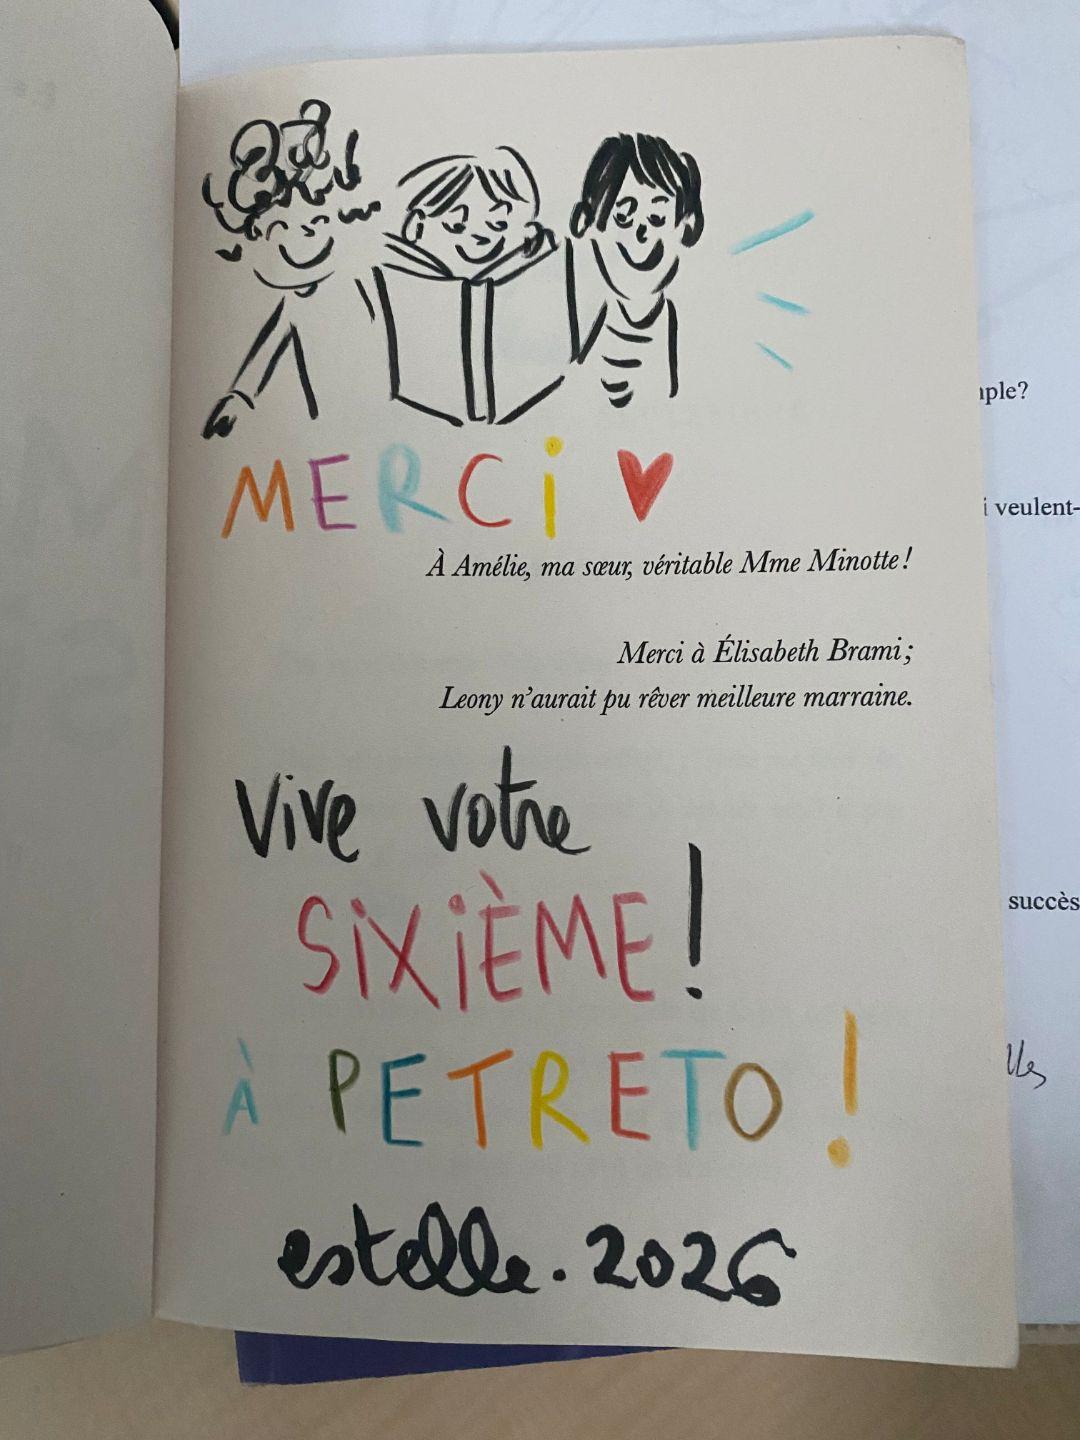 MERCi
À Amélie, ma sœur, véritable Mme Minotte !
Merci à Élisabeth Brami ;
Leony n'aurait pu rêver meilleure marraine.
Vive votre
SiXiÈME !
À PETRETO !
estelle. 2026
mple?
i veulent-
succès